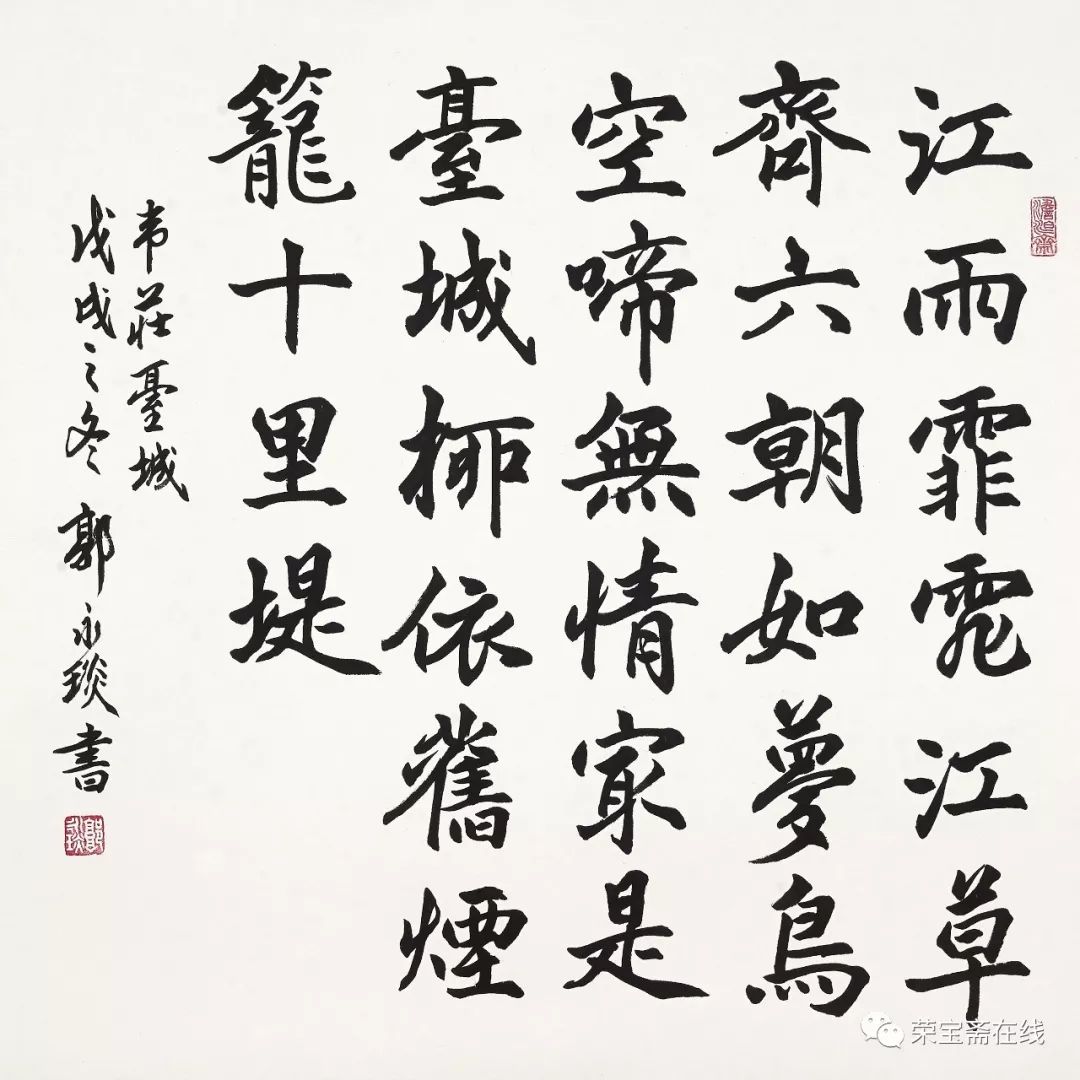 江雨霏霏江草
齊六朝如夢鳥
空啼無情冣是
臺城柳依舊煙
籠十里堤
韋莊臺城
戊戌之冬 郭永琰書
荣宝斋在线